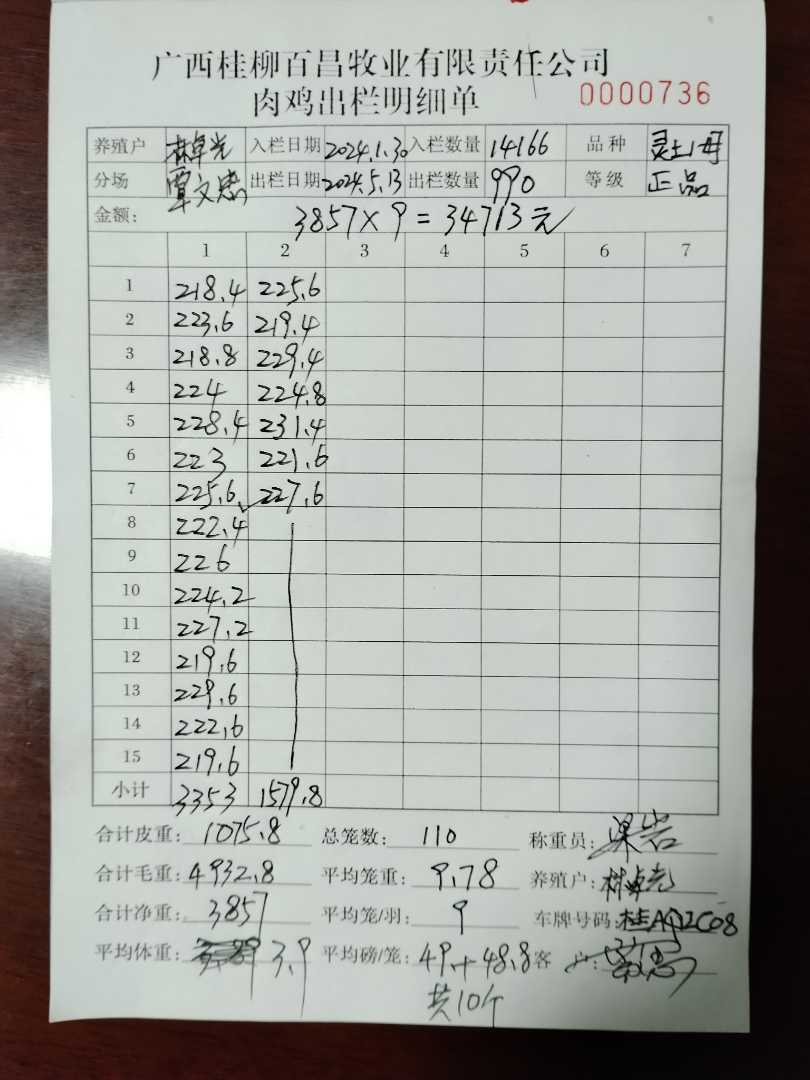 广西桂柳百昌牧业有限责任公司
肉鸡出栏明细单 0000736
养殖户 林卓光 入栏日期 2024.1.30 入栏数量 14166 品种 灵土1母
分场 覃文忠 出栏日期 2024.5.13 出栏数量 990 等级 正品
金额: 3857×9=34713元
1 2 3 4 5 6 7
1 218.4 225.6
2 223.6 219.4
3 218.8 229.4
4 224 224.8
5 228.4 231.4
6 223 221.6
7 225.6 227.6
8 222.4
9 226
10 224.2
11 227.2
12 219.6
13 229.6
14 222.6
15 219.6
小计 3353 1579.8
合计皮重: 1075.8 总笼数: 110 称重员: 梁岩
合计毛重: 4932.8 平均笼重: 9.78 养殖户: 林卓光
合计净重: 3857 平均笼/羽: 9 车牌号码:
平均体重: 3.9 平均磅/笼: 49.+48.8 客 户:
共10个